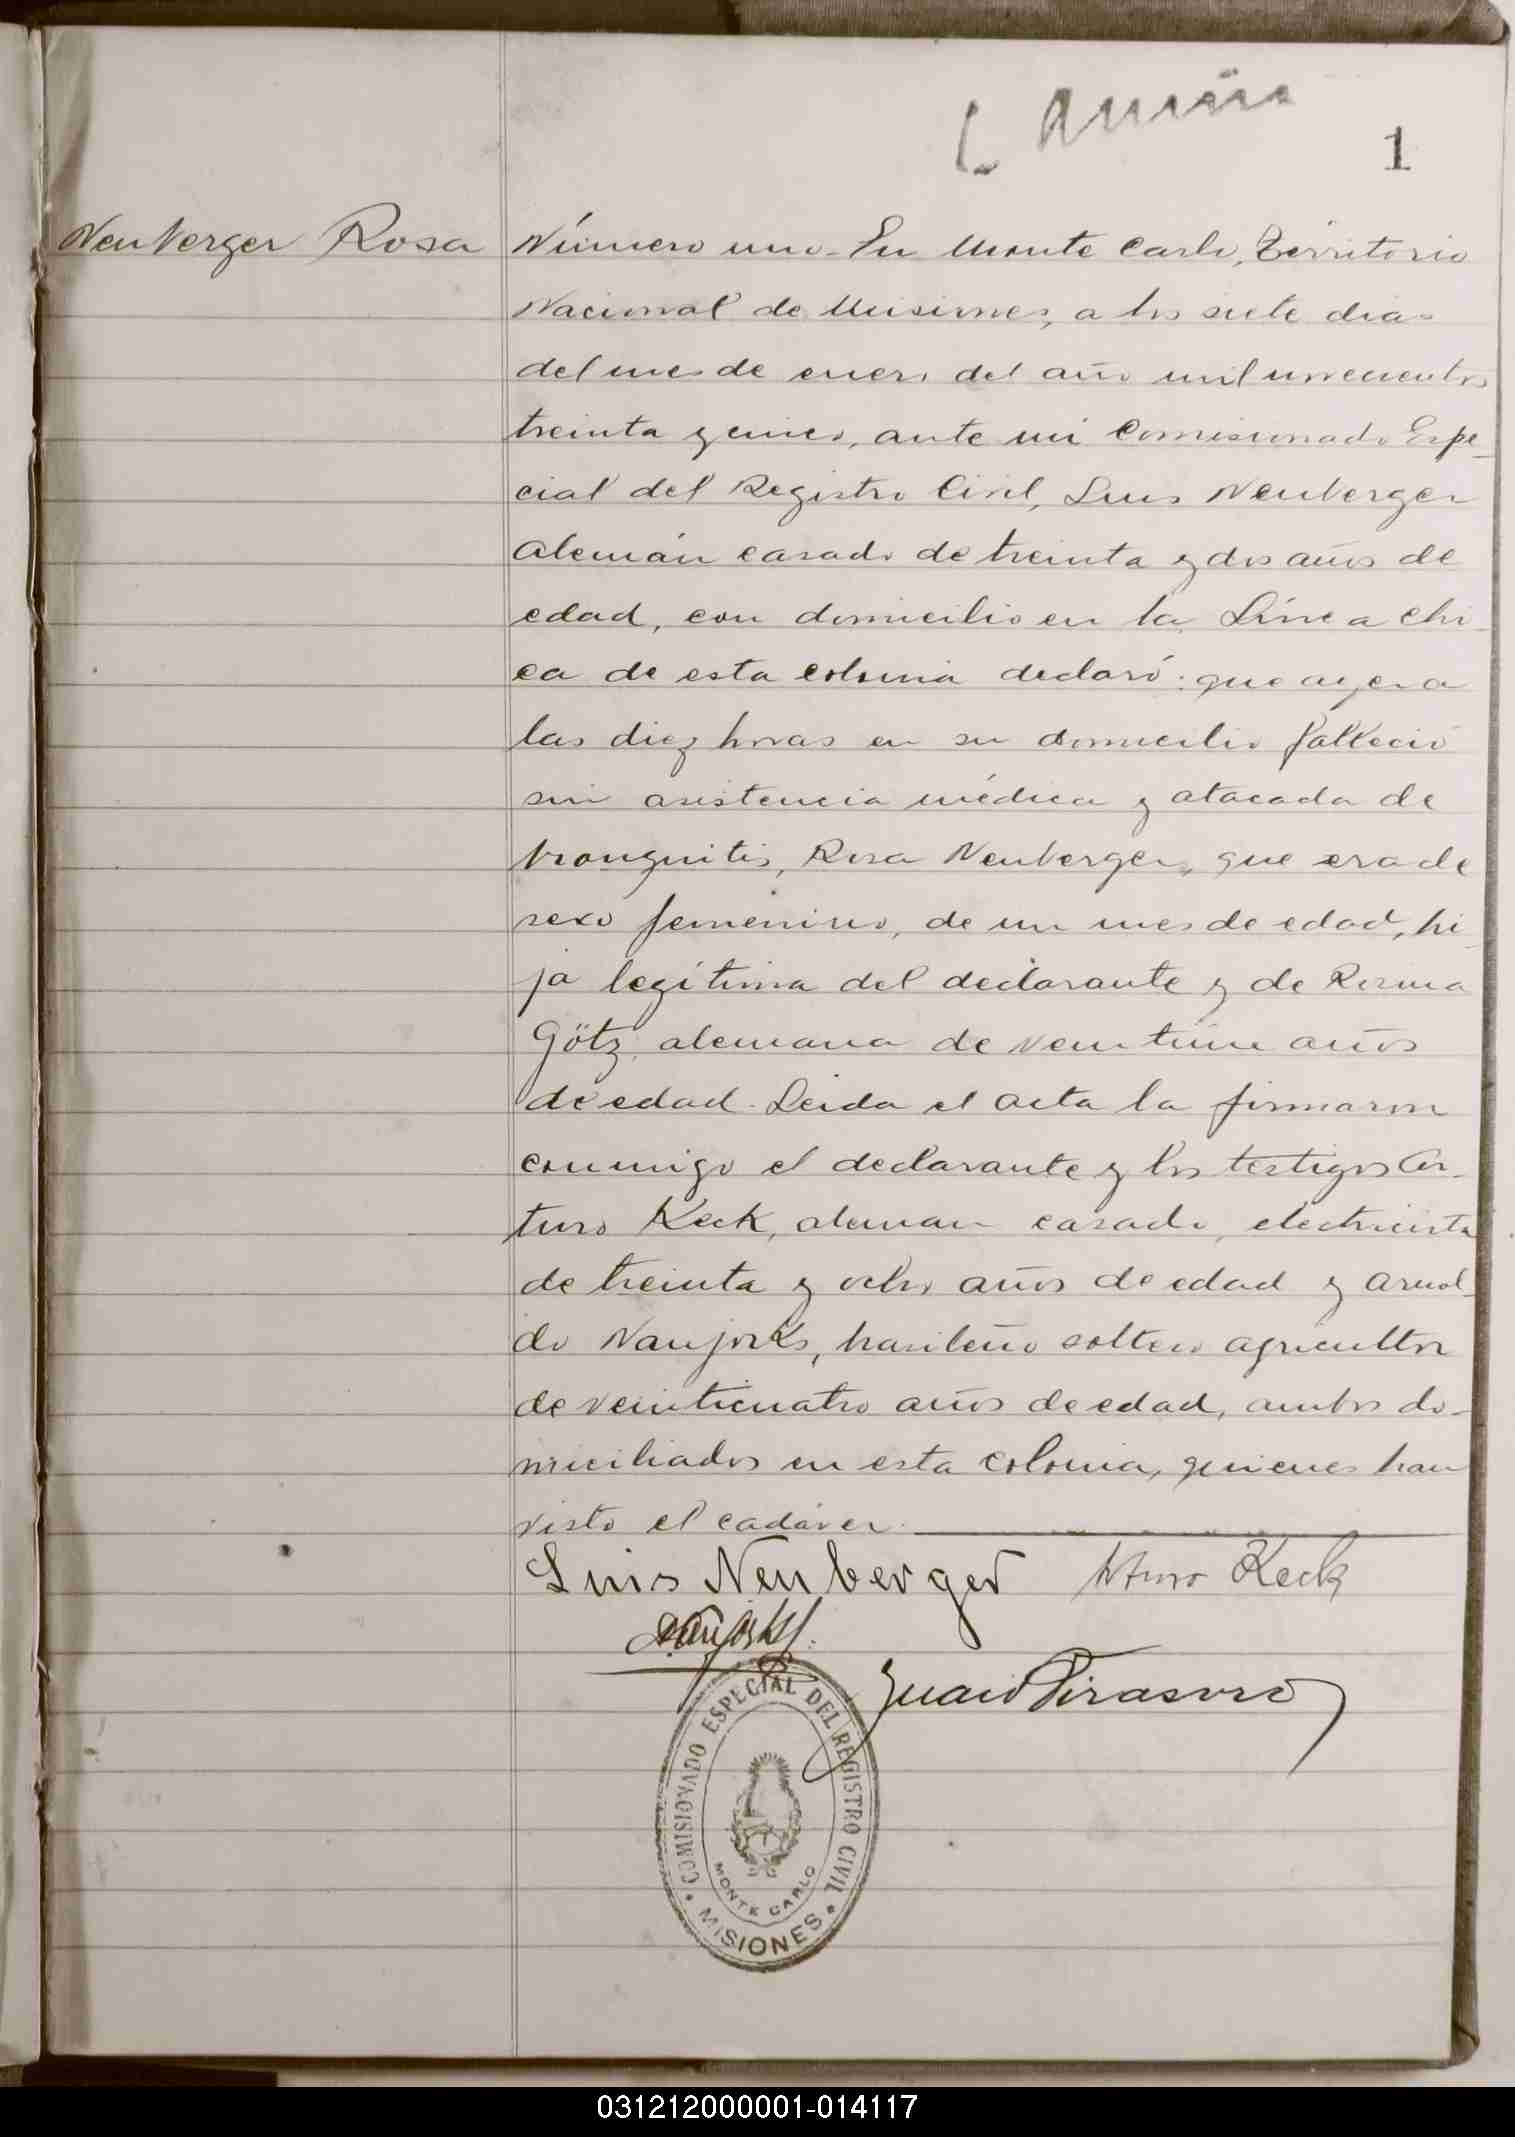 1
Neuberger Rosa
Número uno. En Monte Carlo, Territorio
Nacional de Misiones, a los siete dias
del mes de enero del año mil novecientos
treinta y cinco, ante mi Comisionado Espe-
cial del Registro Civil, Luis Neuberger
alemán casado de treinta y dos años de
edad, con domicilio en la Línea chi-
ca de esta colonia declaró: que ayer a
las diez horas en su domicilio falleció
sin asistencia médica y atacada de
bronquitis, Rosa Neuberger, que era de
sexo femenino, de un mes de edad, hi-
ja legítima del declarante y de Rosina
Götz, alemana de veintiún años
de edad. Leida el acta la firmaron
conmigo el declarante y los testigos Ar-
turo Keck, aleman casado, electricista
de treinta y ocho años de edad y Arnol-
do Naujorks, brasileño soltero agricultor
de veinticuatro años de edad, ambos do-
miciliados en esta colonia, quienes han
visto el cadáver.
Luis Neuberger Arturo Keck
Naujorks
Juan Pirasoro
COMISIONADO ESPECIAL DEL REGISTRO CIVIL
MONTE CARLO
MISIONES
031212000001-014117